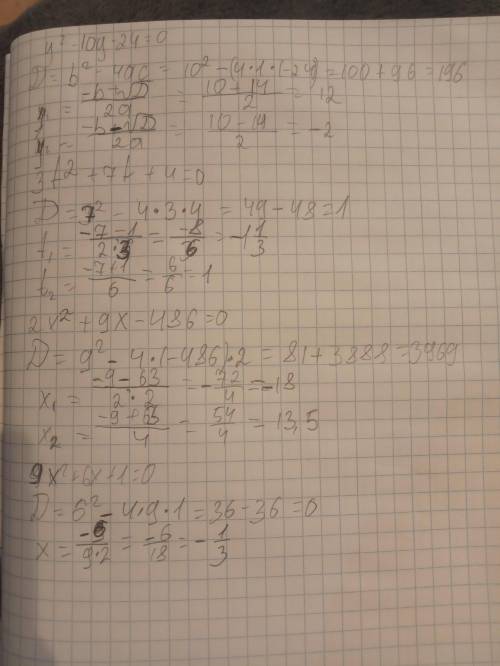 y² - 10y - 24 = 0
D = b² - 4ac = 10² - (4·1·(-24)) = 100 + 96 = 196
y₁ = (-b+√D)/2a = (10+14)/2 = 12
y₂ = (-b-√D)/2a = (10-14)/2 = -2
3t² + 7t + 4 = 0
D = 7² - 4·3·4 = 49 - 48 = 1
t₁ = (-7-1)/(2·3) = -8/6 = -1 1/3
t₂ = (-7+1)/6 = 6/6 = 1
2x² + 9x - 486 = 0
D = 9² - 4·(-486)·2 = 81 + 3888 = 3969
x₁ = (-9-63)/(2·2) = -72/4 = -18
x₂ = (-9+63)/4 = 54/4 = 13,5
9x² + 6x + 1 = 0
D = 6² - 4·9·1 = 36 - 36 = 0
x = -6/(9·2) = -6/18 = -1/3